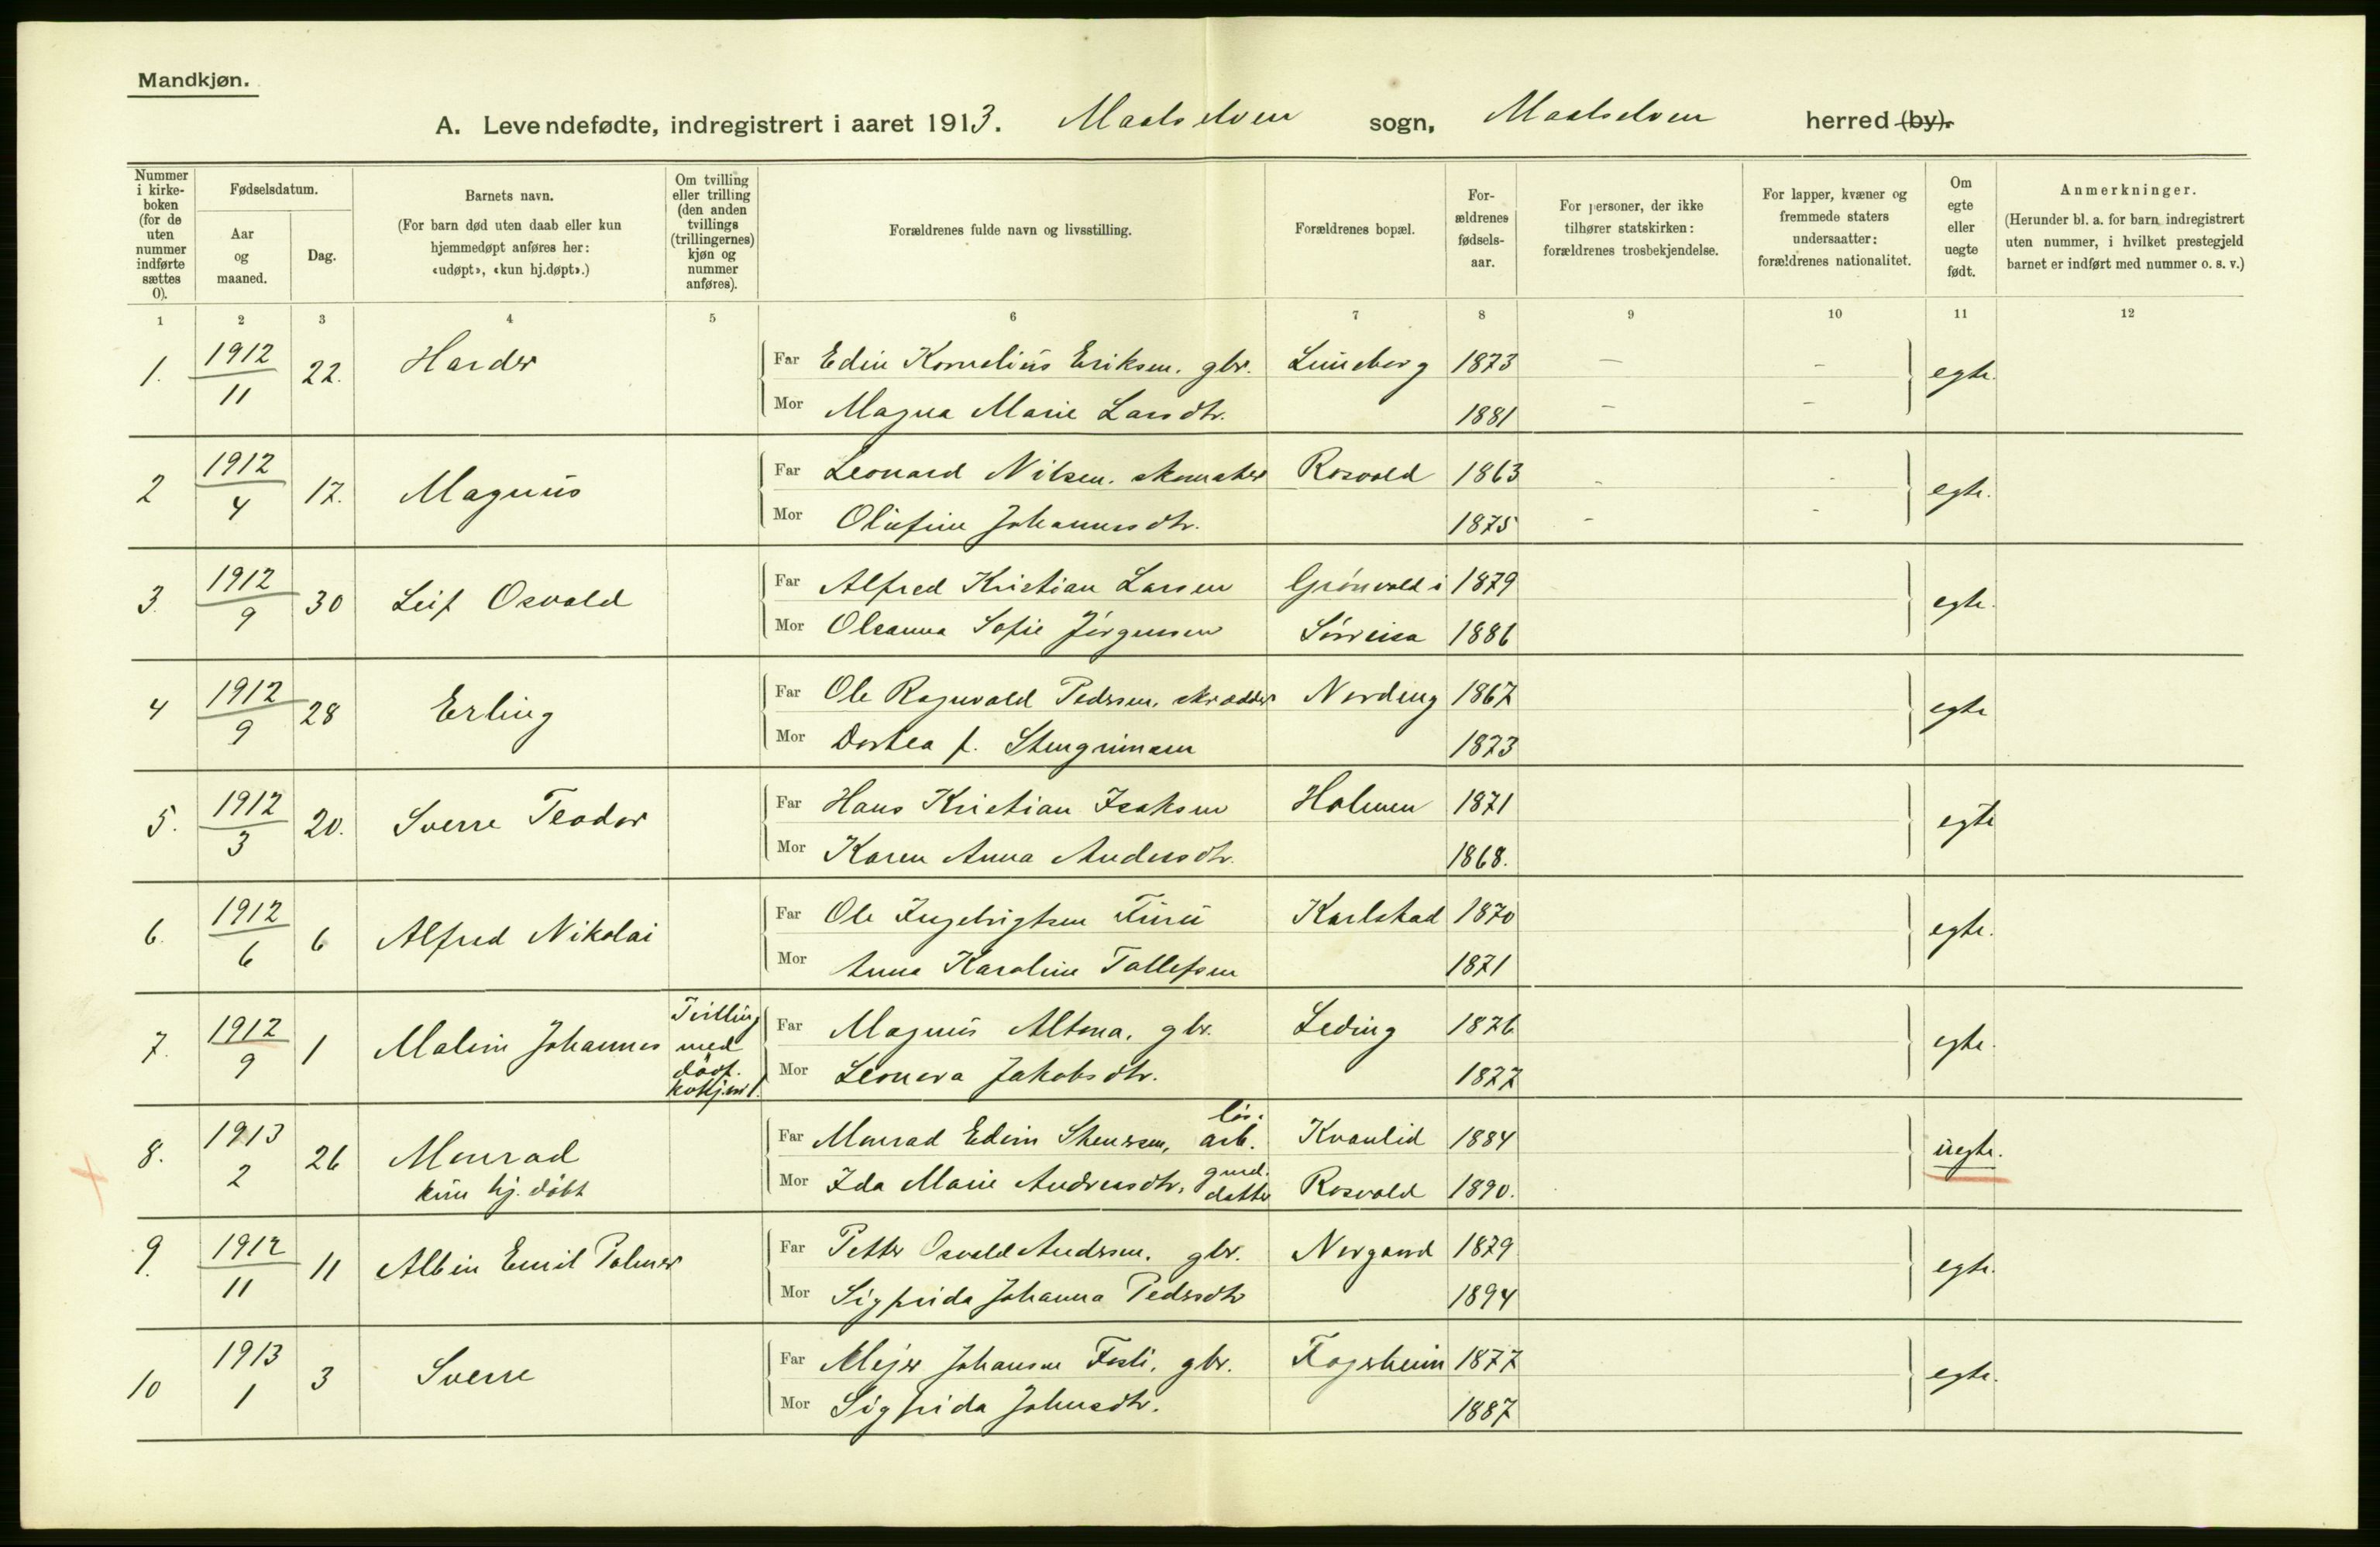 Mandkjøn.
A. Levendefødte, indregistrert i aaret 1913. Maalselven sogn, Maalselven herred (by).
Nummer i kirke-boken (for de uten nummer indførte sættes 0).
Fødselsdatum.
Aar og maaned.
Dag.
Barnets navn.
(For barn død uten daab eller kun hjemmedøpt anføres her: «udøpt», «kun hj.døpt».)
Om tvilling eller trilling (den anden tvillings (trillingernes) kjøn og nummer anføres).
Forældrenes fulde navn og livsstilling.
Forældrenes bopæl.
For-ældrenes fødsels-aar.
For personer, der ikke tilhører statskirken: forældrenes trosbekjendelse.
For lapper, kvæner og fremmede staters undersaatter: forældrenes nationalitet.
Om egte eller uegte født.
Anmerkninger.
(Herunder bl. a. for barn indregistrert uten nummer, i hvilket prestegjeld barnet er indført med nummer o. s. v.)
1 2 3 4 5 6 7 8 9 10 11 12
1. 1912 11 22. Harder Far Edin Kornelius Eriksen. gbr. Luneborg 1873 – – egte.
Mor Magna Marie Larsdtr. 1881 – –
2 1912 4 17. Magnus Far Leonard Nilsen. skomaker Rosvold 1863 - - egte.
Mor Olufine Johannesdtr. 1875 - -
3. 1912 9 30 Leif Osvald Far Alfred Kristian Larsen Grönvold i 1879 egte.
Mor Oleanna Sofie Jörgensen Sörreisa 1886
4 1912 9 28 Erling Far Ole Ragnvald Pedersen. skrædder Nordeng 1867 egte
Mor Dortea f. Stengrimsen 1873
5. 1912 3 20. Sverre Teodor Far Hans Kristian Isaksen Holmen 1871 egte
Mor Karen Anna Andersdtr. 1868.
6. 1912 6 6 Alfred Nikolai Far Ole Ingebrigtsen Furu Karlstad 1870 egte.
Mor Anna Karoline Tollefsen 1871
7. 1912 9 1 Malvin Johannes Tvilling med dödf. kvkjøn 1. Far Magnus Altona. gbr. Leding 1876 egte.
Mor Leonora Jakobsdtr. 1877
8. 1913 2 26 Monrad kun hj. döbt Far Monrad Edvin Stenersen, lös. arb. Kvanlid 1884 uegte.
Mor Ida Marie Andreasdtr. gmd. datter Rosvold 1890.
9. 1912 11 11 Albin Emil Palmer Far Petter Osvald Andersen. gbr. Norgaard 1879 egte.
Mor Sigfrida Johanna Pedersdtr 1894
10 1913 1 3 Sverre Far Mejer Johansen Fosli. gbr. Fagerheim 1877 egte.
Mor Sigfrida Johnsdtr. 1887